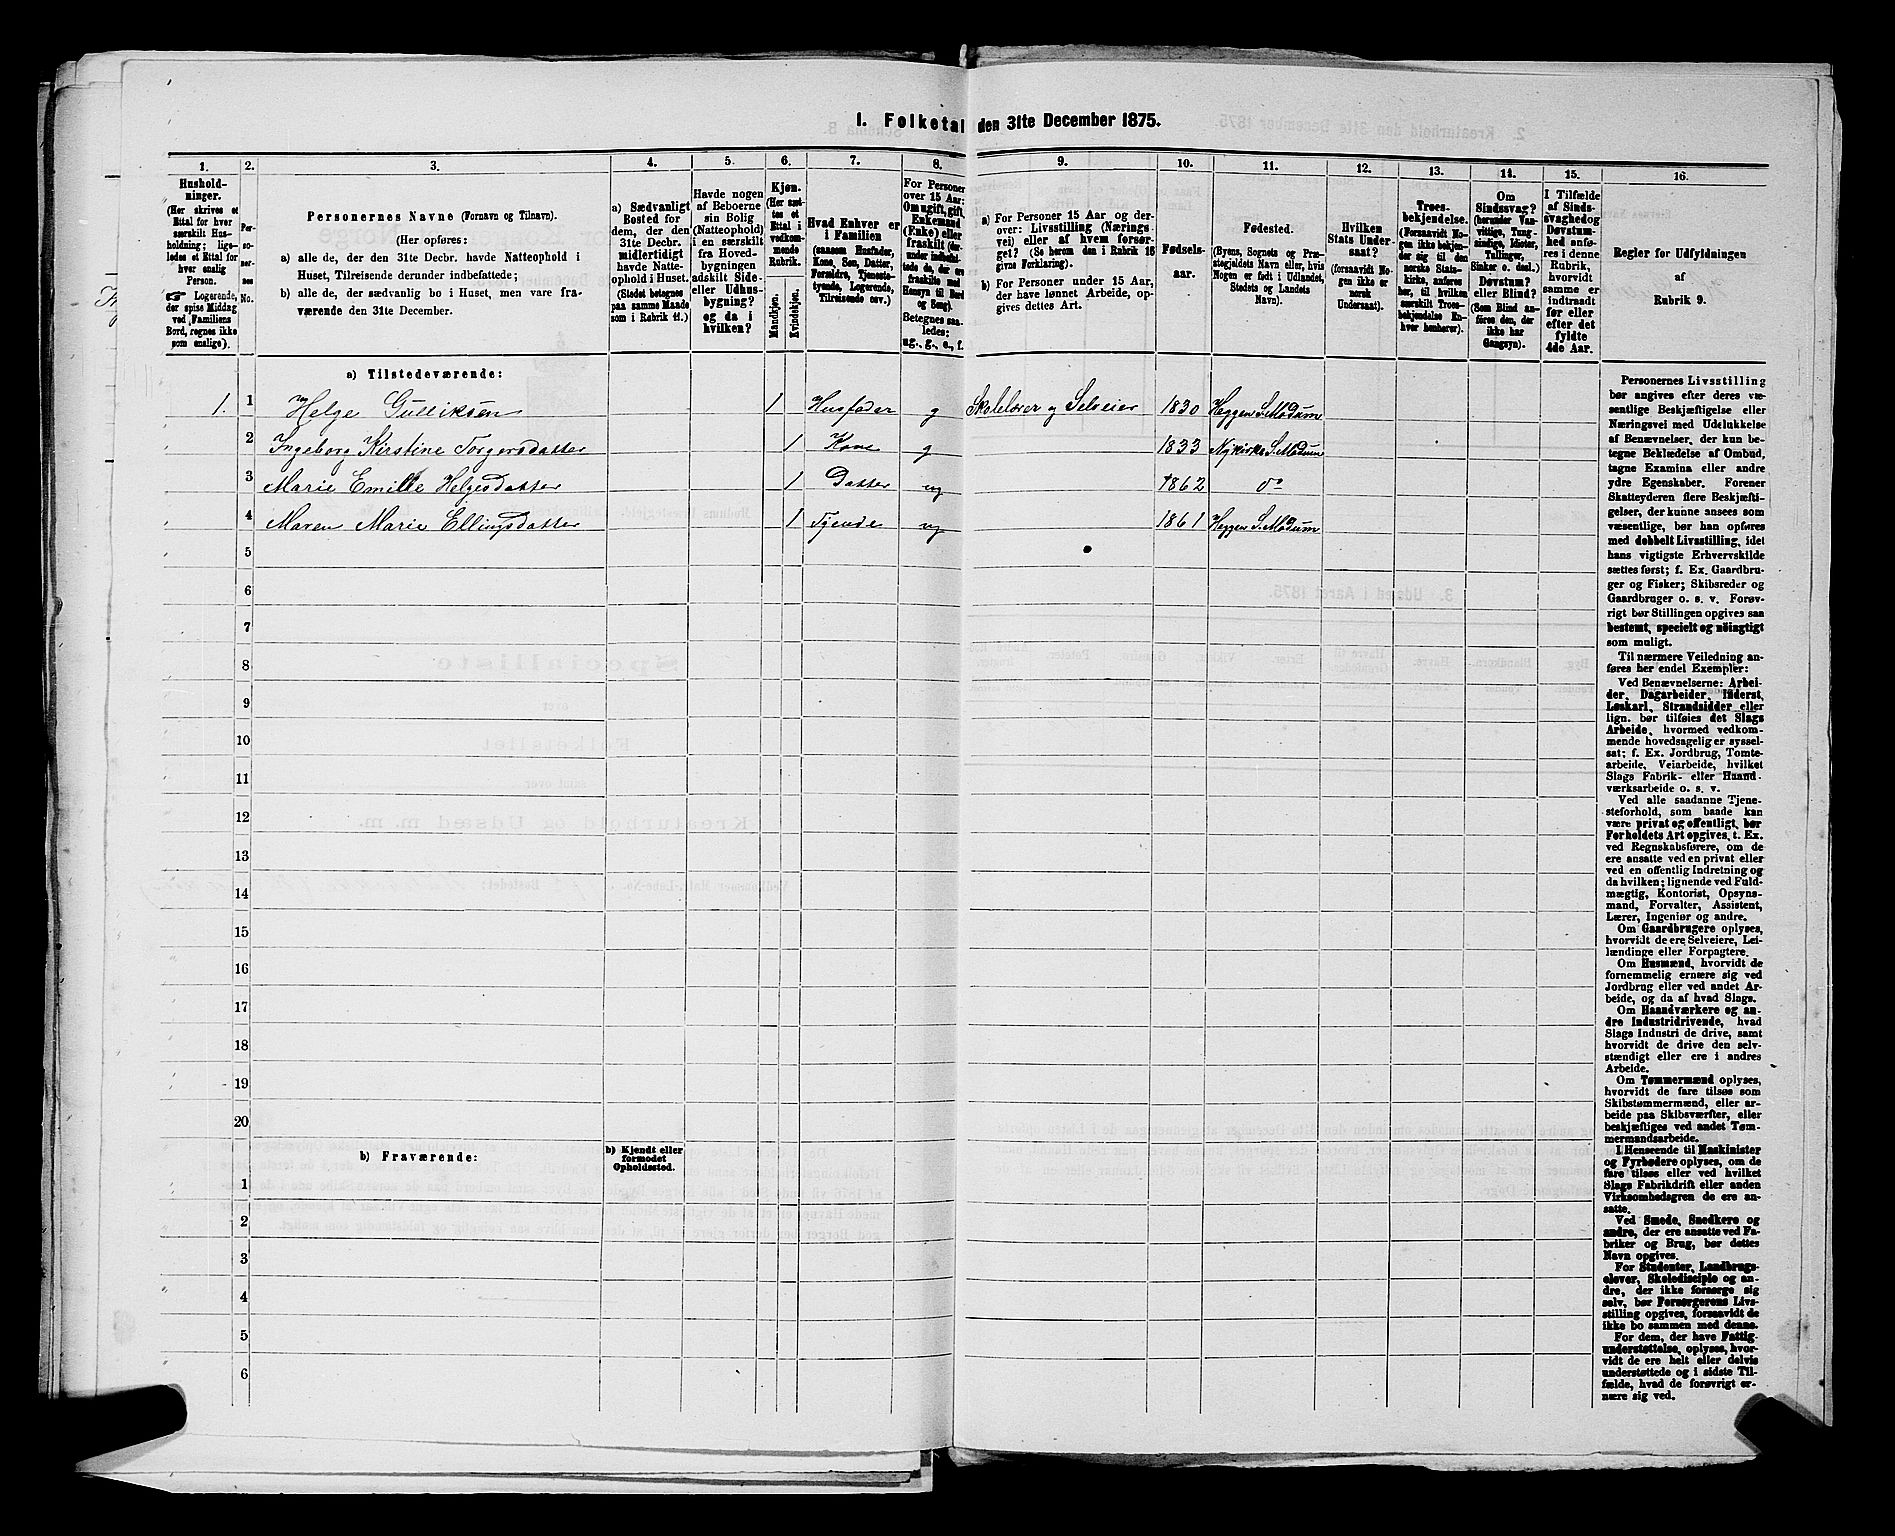 1. Folketal den 31te December 1875.
1. 2. 3. 4. 5. 6. 7. 8. 9. 10. 11. 12. 13. 14. 15. 16.
Hushold-
ninger.
(Her skrives et
Ettal for hver
særskilt Hus-
holdning; lige-
ledes et Ettal for
hver enslig
Person.
☛ Logerende,
der spise Middag
ved Familiens
Bord, regnes ikke
som enslige).
Per-
so-
ner-
nes
No.
Personernes Navne (Fornavn og Tilnavn).
(Her opføres:
a) alle de, der den 31te Decbr. havde Natteophold i
Huset, Tilreisende derunder indbefattede;
b) alle de, der sædvanlig bo i Huset, men vare fra-
værende den 31te December.
a) Sædvanligt
Bosted for
dem, der den
31te Decbr.
midlertidigt
havde Natte-
ophold i Huset.
(Stedet betegnes
paa samme Maade
som i Rubrik 11.)
Havde nogen
af Beboerne
sin Bolig
(Natteophold)
i en særskilt
fra Hoved-
bygningen
adskilt Side-
eller Udhus-
bygning?
og da i
hvilken?
Kjøn.
(Her sæt-
tes et
Ettal i
vedkom-
mende
Rubrik.
Mandkjøn.
Kvindekjøn.
Hvad Enhver er
i Familien
(saasom Husfader,
Kone, Søn, Datter,
Forældre, Tjeneste-
tyende, Logerende,
Tilreisende osv.)
For Personer
over 15 Aar:
Om ugift, gift,
Enkemand
(Enke) eller
fraskilt (der-
under indbefat-
tede de, der ere
fraskilte med
Hensyn til Bord
og Seng).
Betegnes saa-
ledes:
ug., g., e., f.
a) For Personer 15 Aar og der-
over: Livsstilling (Nærings-
vei) eller af hvem forsør-
get? (Se herom den i Rubrik 16
givne Forklaring).
b) For Personer under 15 Aar,
der have lønnet Arbeide, op-
gives dettes Art.
Fødsels-
aar.
Fødested.
(Byens, Sognets og Præ-
stegjeldets Navn eller, hvis
Nogen er født i Udlandet,
Stedets og Landets
Navn).
Hvilken
Stats Under-
saat?
(forsaavidt No-
gen ikke er
norsk
Undersaat).
Troes-
bekjendelse.
(Forsaavidt No-
gen ikke bekjen-
der sig til den
norske Stats-
kirke, anføres
her, til hvilken
særskilt Troes-
bekjendelse En-
hver henhører).
Om
Sindssvag?
(herunder Van-
vittige, Tung-
sindige, Idioter,
Tullinger,
Sinker o. desl.)
Døvstum?
eller Blind?
(Som Blind an-
føres den, der
ikke har
Gangsyn).
I Tilfælde
af Sinds-
svaghed og
Døvstum-
hed anfø-
res i denne
Rubrik,
hvorvidt
samme er
indtraadt
før eller
efter det
fyldte
4de Aar.
Regler for Udfyldningen
af
Rubrik 9.
a) Tilstedeværende:
1. 1 Helge Gulliksen 1 Husfader g Skolelærer og Selveier 1830 Heggen S. Modum
2 Ingeborg Kirstine Torgersdatter 1 Kone g 1833 Nykirke S. Modum
3 Marie Emilie Helgesdatter 1 Datter ug 1862 do
4 Maren Marie Ellingsdatter 1 Tjende ug 1861 Heggen S. Modum
5
6
7
8
9
10
11
12
13
14
15
16
17
18
19
20
b) Fraværende:
b) Kjendt eller
formodet
Opholdssted.
1
2
3
4
5
6
Personernes Livsstilling
bør angives efter deres væ-
sentlige Beskjæftigelse eller
Næringsvei med Udelukkelse
af Benævnelser, der kun be-
tegne Beklædelse af Ombud,
tagne Examina eller andre
ydre Egenskaber. Forener
Skatteyderen flere Beskjæfti-
gelser, der kunne ansees som
væsentlige, bør han opføres
med dobbelt Livsstilling, idet
hans vigtigste Erhvervskilde
sættes først; f. Ex. Gaardbru-
ger og Fisker; Skibsreder og
Gaardbruger o. s. v. Forøv-
rigt bør Stillingen opgives saa
bestemt, specielt og nöiagtigt
som muligt.
Til nærmere Veiledning an-
føres her endel Exempler:
Ved Benævnelserne: Arbei-
der, Dagarbeider, Inderst,
Løskarl, Strandsidder eller
lign. bør tilføies det Slags
Arbeide, hvormed vedkom-
mende hovedsagelig er syssel-
sat; f. Ex. Jordbrug, Tomte-
arbeide, Veiarbeide, hvilket
Slags Fabrik- eller Haand-
værksarbeide o. s. v.
Ved alle saadanne Tjene-
steforhold, som baade kan
være privat og offentligt, bør
Forholdets Art opgives, t. Ex.
ved Regnskabsførere, om de
ere ansatte ved en privat eller
ved en offentlig Indretning og
da hvilken; lignende ved Fuld-
mægtig, Kontorist, Opsyns-
mand, Forvalter, Assistent,
Lærer, Ingeniør og andre.
Om Gaardbrugere oplyses,
hvorvidt de ere Selveiere, Lei-
lændinge eller Forpagtere.
Om Husmænd, hvorvidt de
fornemmelig ernære sig ved
Jordbrug eller ved andet Ar-
beide, og da af hvad Slags.
Om Haandværkere og an-
dre Industridrivende, hvad
Slags Industri de drive, samt
hvorvidt de drive den selv-
stændigt eller ere i andres
Arbeide.
Om Tømmermænd oplyses,
hvorvidt de fare tilsøs som
Skibstømmermænd, eller ar-
beide paa Skibsværfter, eller
beskjæftiges ved andet Tøm-
mermandsarbeide.
I Henseende til Maskinister
og Fyrbødere oplyses, om de
fare tilsøs eller ved hvilket
Slags Fabrikdrift eller anden
Virksomhedsgren de ere an-
satte.
Ved Smede, Snedkere og
andre, der ere ansatte ved Fa-
briker og Brug, bør dettes
Navn opgives.
For Studenter, Landbrugs-
elever, Skoledisciple og an-
dre, der ikke forsørge sig
selv, bør Forsørgerens Livs-
stilling opgives, forsaavidt de
ikke bo sammen med denne.
For dem, der have Fattig-
understøttelse, oplyses, hvor-
vidt de ere helt eller delvis
understøttede og i sidste Til-
fælde, hvad de forøvrigt er-
nære sig ved.